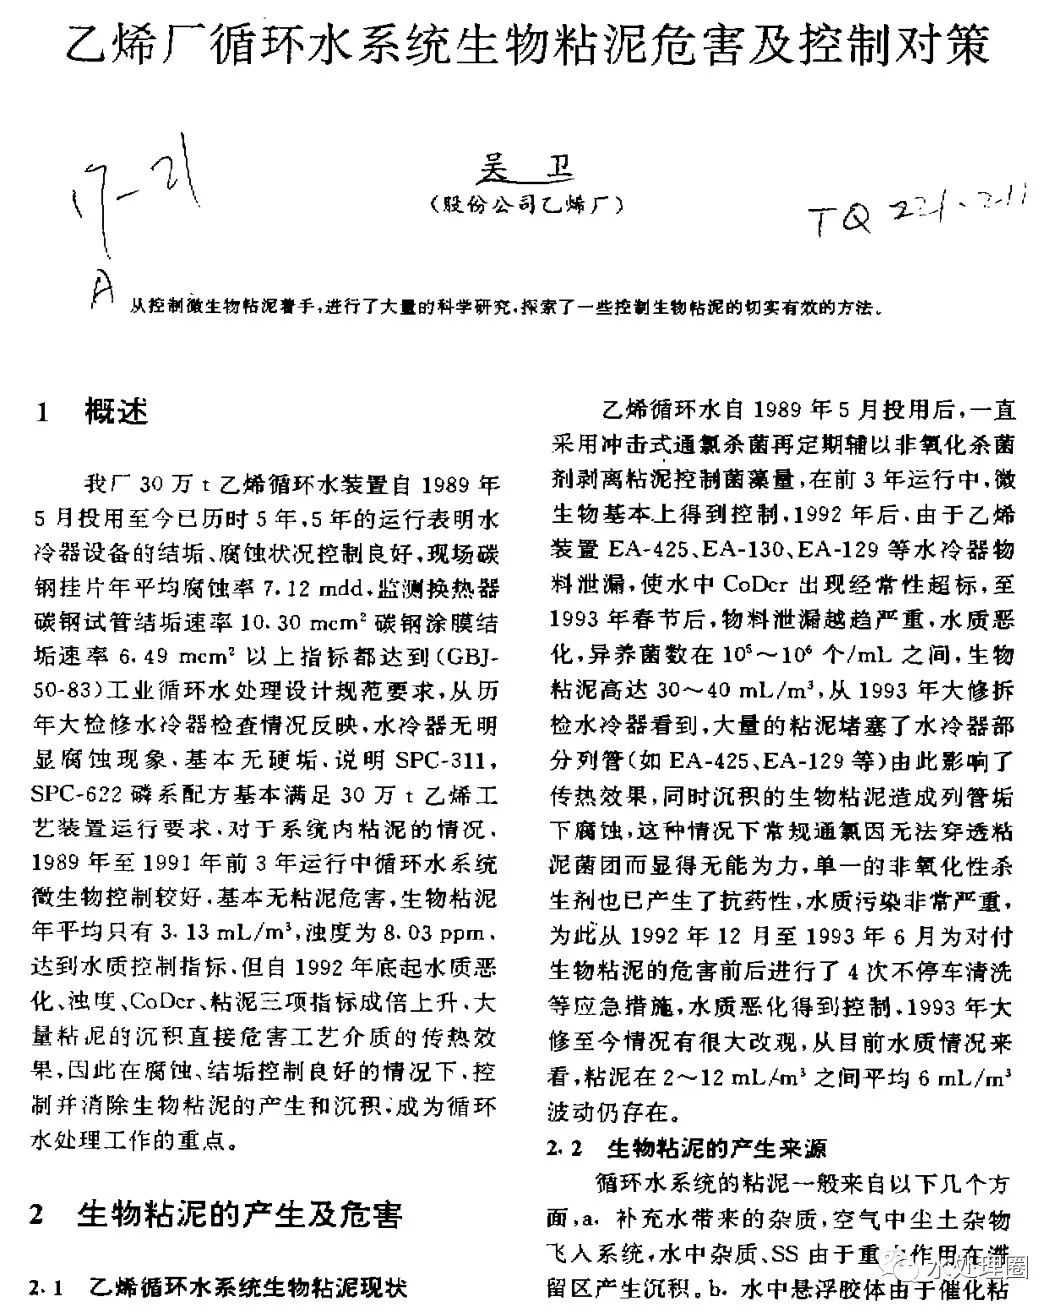 乙烯厂循环水系统生物粘泥危害及控制对策
吴 卫
(股份公司乙烯厂)
17-21
TQ 221.211
A
从控制微生物粘泥着手,进行了大量的科学研究,探索了一些控制生物粘泥的切实有效的方法。
1 概述
我厂 30 万 t 乙烯循环水装置自 1989 年
5 月投用至今已历时 5 年,5 年的运行表明水
冷器设备的结垢、腐蚀状况控制良好,现场碳
钢挂片年平均腐蚀率 7.12 mdd,监测换热器
碳钢试管结垢速率 10.30 mcm² 碳钢涂膜结
垢速率 6.49 mcm² 以上指标都达到(GBJ-
50-83)工业循环水处理设计规范要求,从历
年大检修水冷器检查情况反映,水冷器无明
显腐蚀现象,基本无硬垢,说明 SPC-311,
SPC-622 磷系配方基本满足 30 万 t 乙烯工
艺装置运行要求,对于系统内粘泥的情况,
1989 年至 1991 年前 3 年运行中循环水系统
微生物控制较好,基本无粘泥危害,生物粘泥
年平均只有 3.13 mL/m³,浊度为 8.03 ppm,
达到水质控制指标,但自 1992 年底起水质恶
化、浊度、CoDcr、粘泥三项指标成倍上升,大
量粘泥的沉积直接危害工艺介质的传热效
果,因此在腐蚀、结垢控制良好的情况下,控
制并消除生物粘泥的产生和沉积,成为循环
水处理工作的重点。
2 生物粘泥的产生及危害
2.1 乙烯循环水系统生物粘泥现状
乙烯循环水自 1989 年 5 月投用后,一直
采用冲击式通氯杀菌再定期辅以非氧化杀菌
剂剥离粘泥控制菌藻量,在前 3 年运行中,微
生物基本上得到控制,1992 年后,由于乙烯
装置 EA-425、EA-130、EA-129 等水冷器物
料泄漏,使水中 CoDcr 出现经常性超标,至
1993 年春节后,物料泄漏越趋严重,水质恶
化,异养菌数在 10⁵～10⁶ 个/mL 之间,生物
粘泥高达 30～40 mL/m³,从 1993 年大修拆
检水冷器看到,大量的粘泥堵塞了水冷器部
分列管(如 EA-425、EA-129 等)由此影响了
传热效果,同时沉积的生物粘泥造成列管垢
下腐蚀,这种情况下常规通氯因无法穿透粘
泥菌团而显得无能为力,单一的非氧化性杀
生剂也已产生了抗药性,水质污染非常严重,
为此从 1992 年 12 月至 1993 年 6 月为对付
生物粘泥的危害前后进行了 4 次不停车清洗
等应急措施,水质恶化得到控制,1993 年大
修至今情况有很大改观,从目前水质情况来
看,粘泥在 2～12 mL/m³ 之间平均 6 mL/m³
波动仍存在。
2.2 生物粘泥的产生来源
循环水系统的粘泥一般来自以下几个方
面,a. 补充水带来的杂质,空气中尘土杂物
飞入系统,水中杂质、SS 由于重力作用在滞
留区产生沉积。b. 水中悬浮胶体由于催化粘
水处理圈